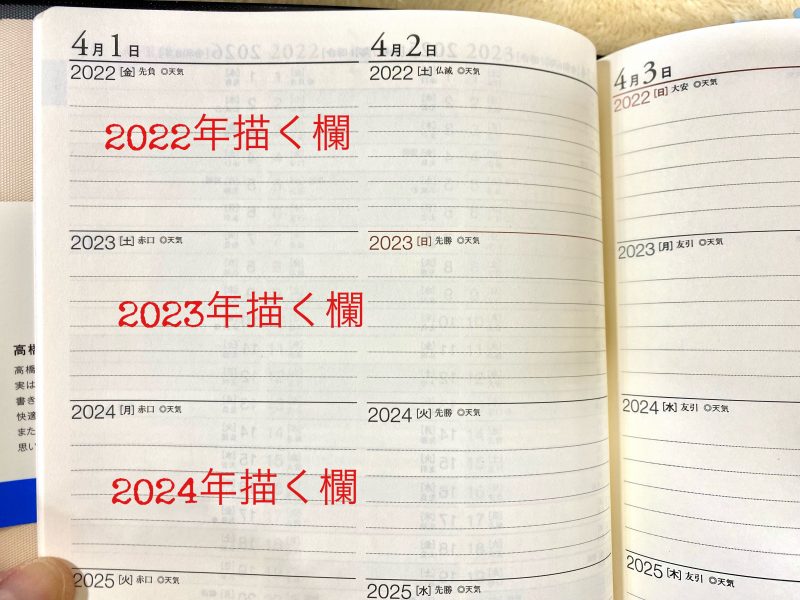 4月1日
2022 [金] 先負 ◎天気
2022年描く欄
2023 [土] 赤口 ◎天気
2023年描く欄
2024 [月] 赤口 ◎天気
2024年描く欄
2025 [火] 赤口 ◎天気
4月2日
2022 [土] 仏滅 ◎天気
2023 [日] 先勝 ◎天気
2024 [火] 先勝 ◎天気
2025 [水] 先勝 ◎天気
4月3日
2022 [日] 大安 ◎天気
2023 [月] 友引 ◎天気
2024 [水] 友引 ◎天気
2025 [木] 友引 ◎天気
高橋
高橋
実は
書き
快適
また
思い